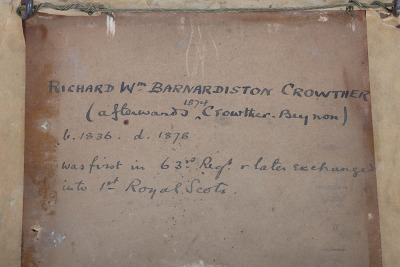 RICHARD Wm BARNARDISTON CROWTHER
1874
(afterwards Crowther-Beynon)
b. 1836. d. 1878
was first in 63rd Regt. & later exchanged
into 1st Royal Scots.